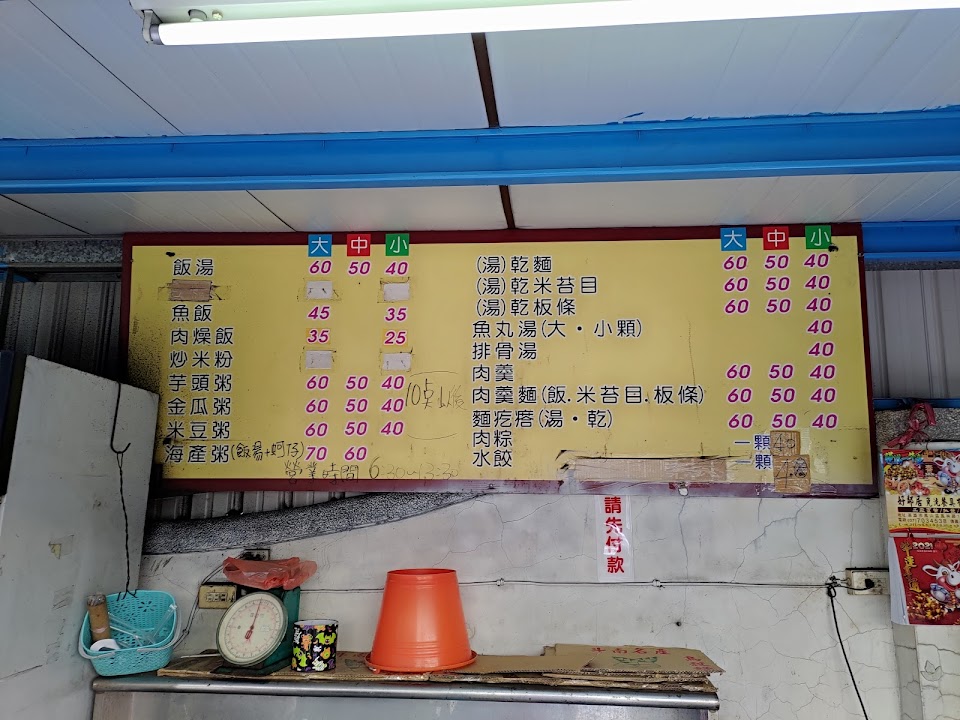 大 中 小
飯湯 60 50 40
魚飯 45 35
肉燥飯 35 25
炒米粉
芋頭粥 60 50 40
金瓜粥 60 50 40
米豆粥 60 50 40
海產粥(飯湯+蚵仔) 70 60
營業時間
10点以後
大 中 小
(湯)乾麵 60 50 40
(湯)乾米苔目 60 50 40
(湯)乾板條 60 50 40
魚丸湯(大・小顆) 40
排骨湯 40
肉羹 60 50 40
肉羹麵(飯.米苔目.板條) 60 50 40
麵疙瘩(湯・乾) 60 50 40
肉粽 一顆40
水餃 一顆
請先付款
2021